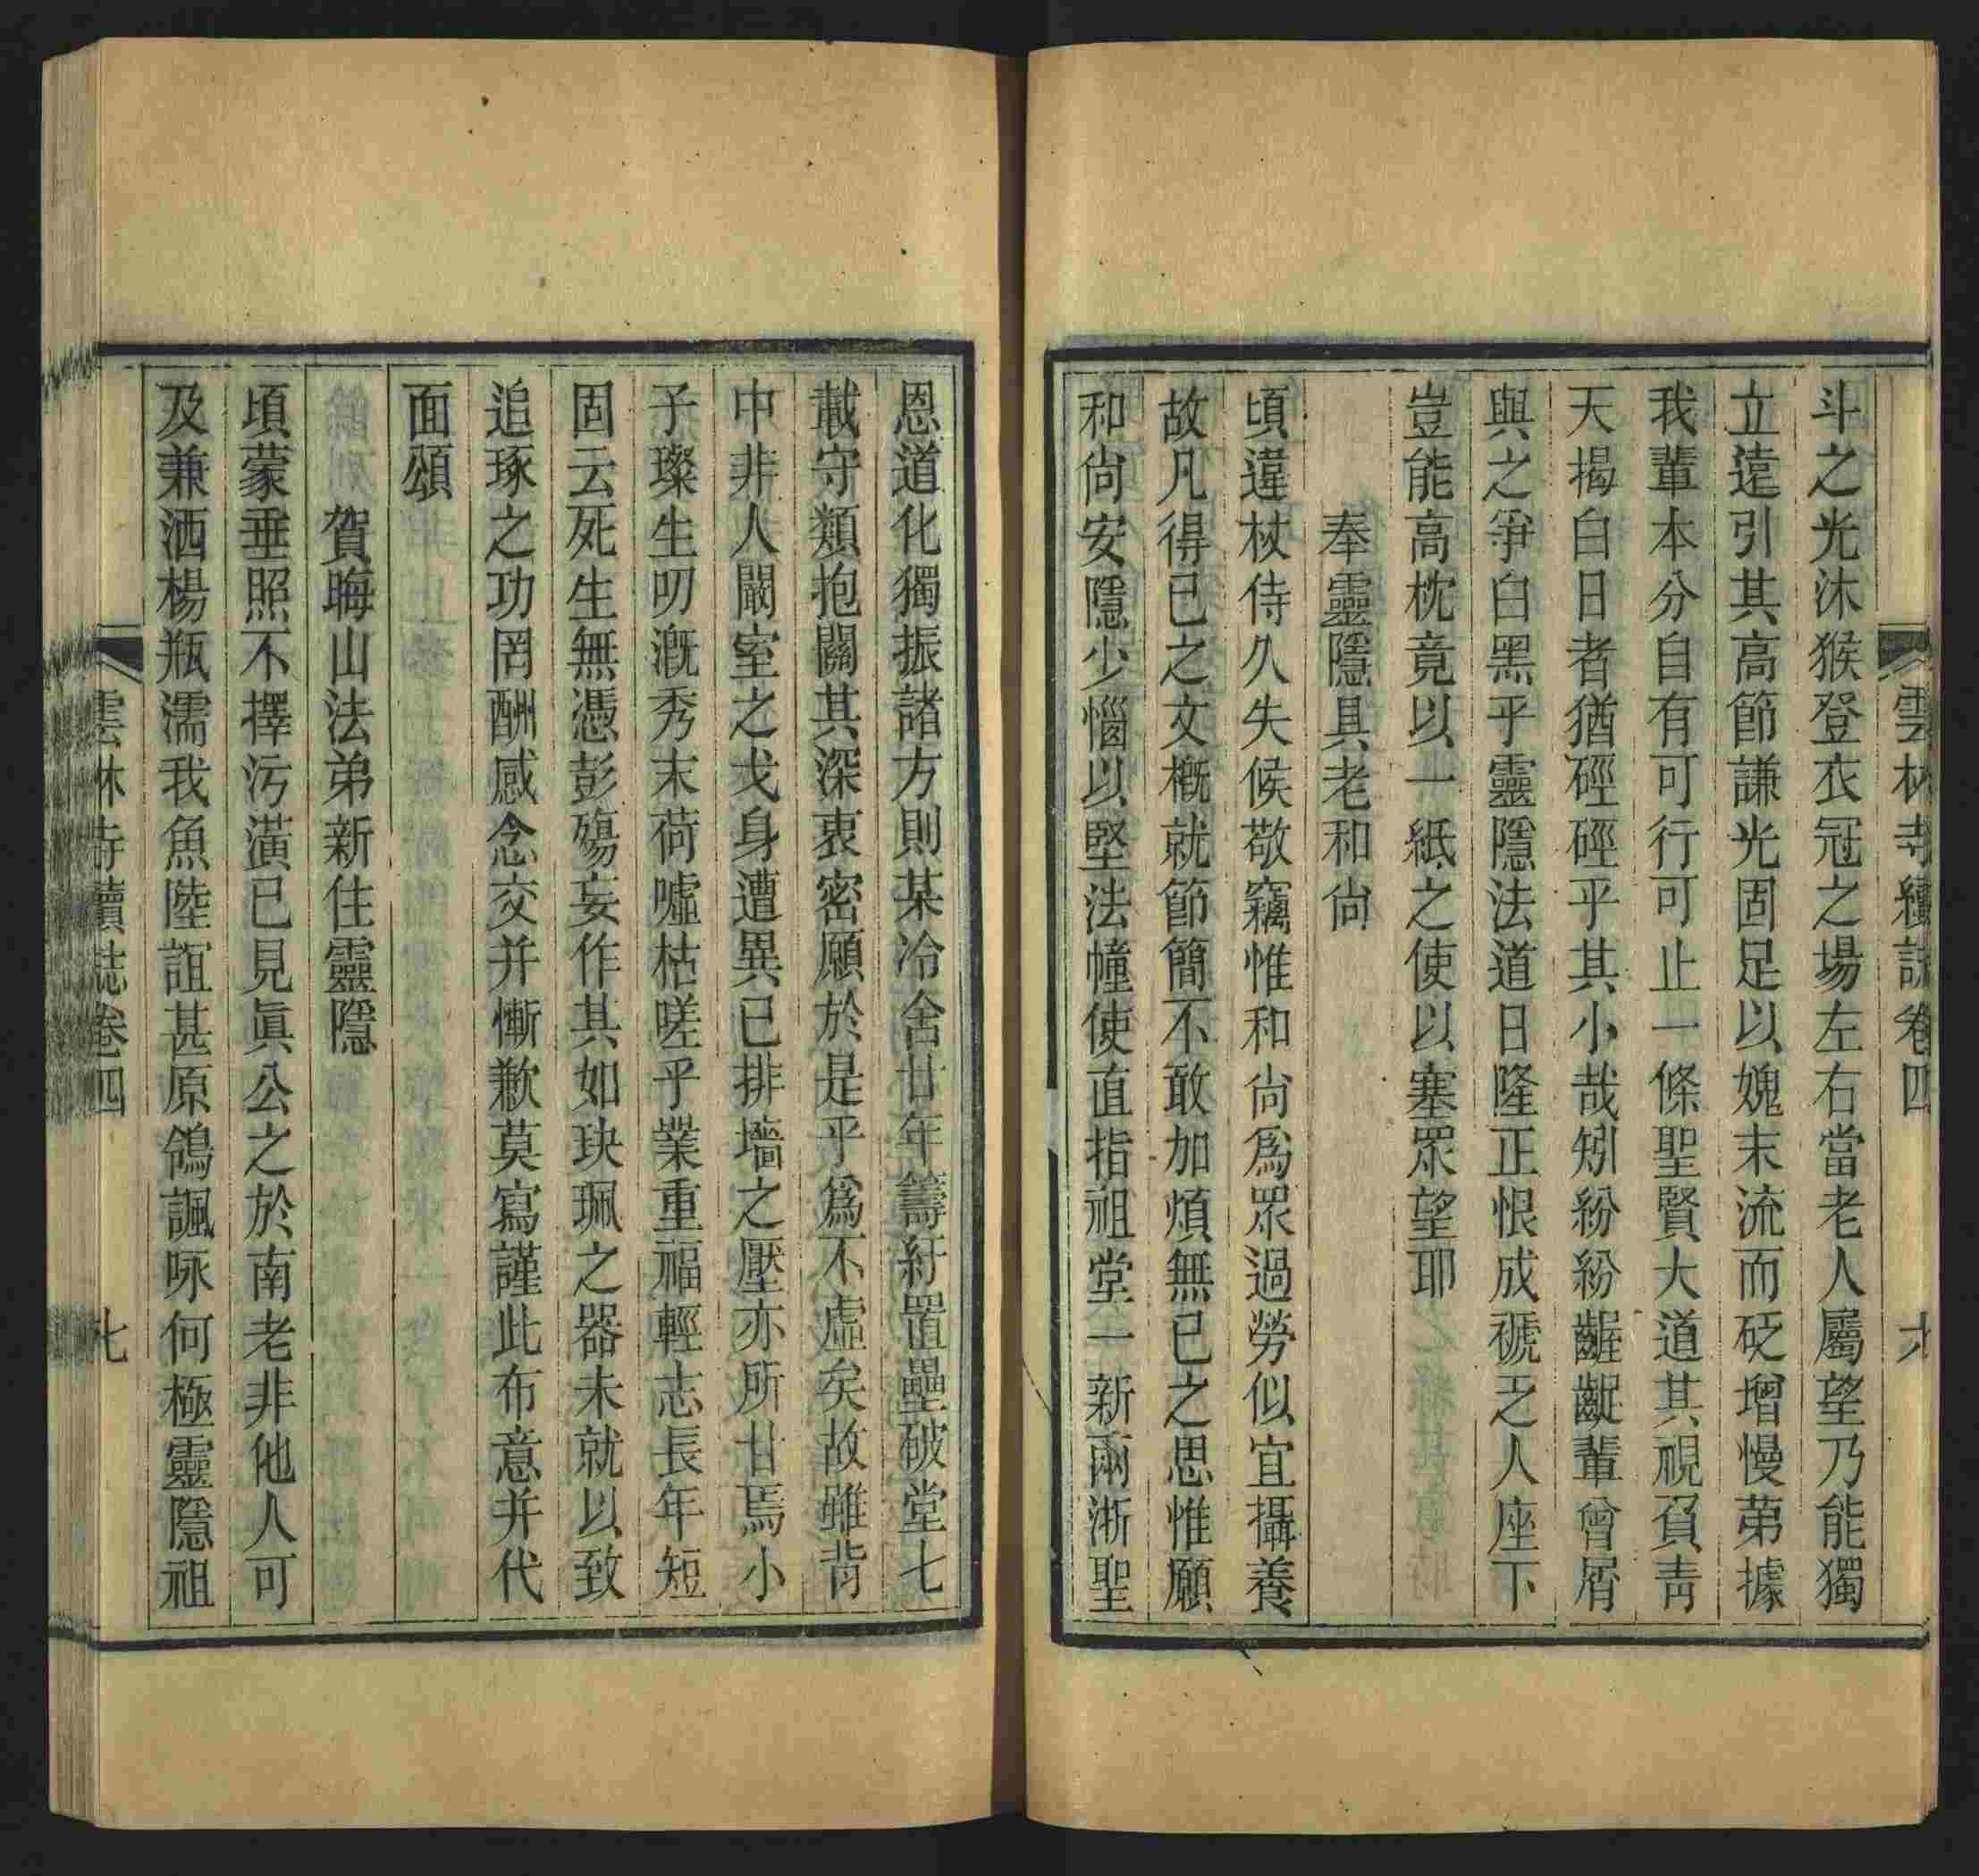 雲林寺續誌卷四 六
斗之光沐猴登衣冠之場左右當老人屬望乃能獨
立遠引其高節謙光固足以媿末流而砭增慢苐據
我輩本分自有可行可止一條聖賢大道其視負靑
天揭白日者猶硜硜乎其小哉矧紛紛齷齪輩曾屑
與之爭白黑乎靈隱法道日隆正恨成禠乏人座下
豈能高枕竟以一紙之使以塞眾望耶
奉靈隱具老和尙
頃違杖侍久失候敬竊惟和尙爲眾過勞似宜攝養
故凡得已之文槪就節簡不敢加煩無已之思惟願
和尙安隱少惱以堅法幢使直指祖堂一新兩淅聖
恩道化獨振諸方則某冷舍廿年籌紆罝壘破堂七
載守類抱關其深衷密願於是乎爲不虛矣故雖背
中非人闞室之戈身遭異已排墻之壓亦所甘焉小
子璨生叨漑秀末荷噓枯嗟乎業重福輕志長年短
固云死生無憑彭殤妄作其如玦珮之器未就以致
追琢之功罔酬感念交并慚歉莫寫謹此布意并代
面頌
賀晦山法弟新住靈隱
頃蒙垂照不擇污潢已見眞公之於南老非他人可
及兼洒楊瓶濡我魚陸誼甚原鴒諷咏何極靈隱祖
雲林寺續誌卷四 七